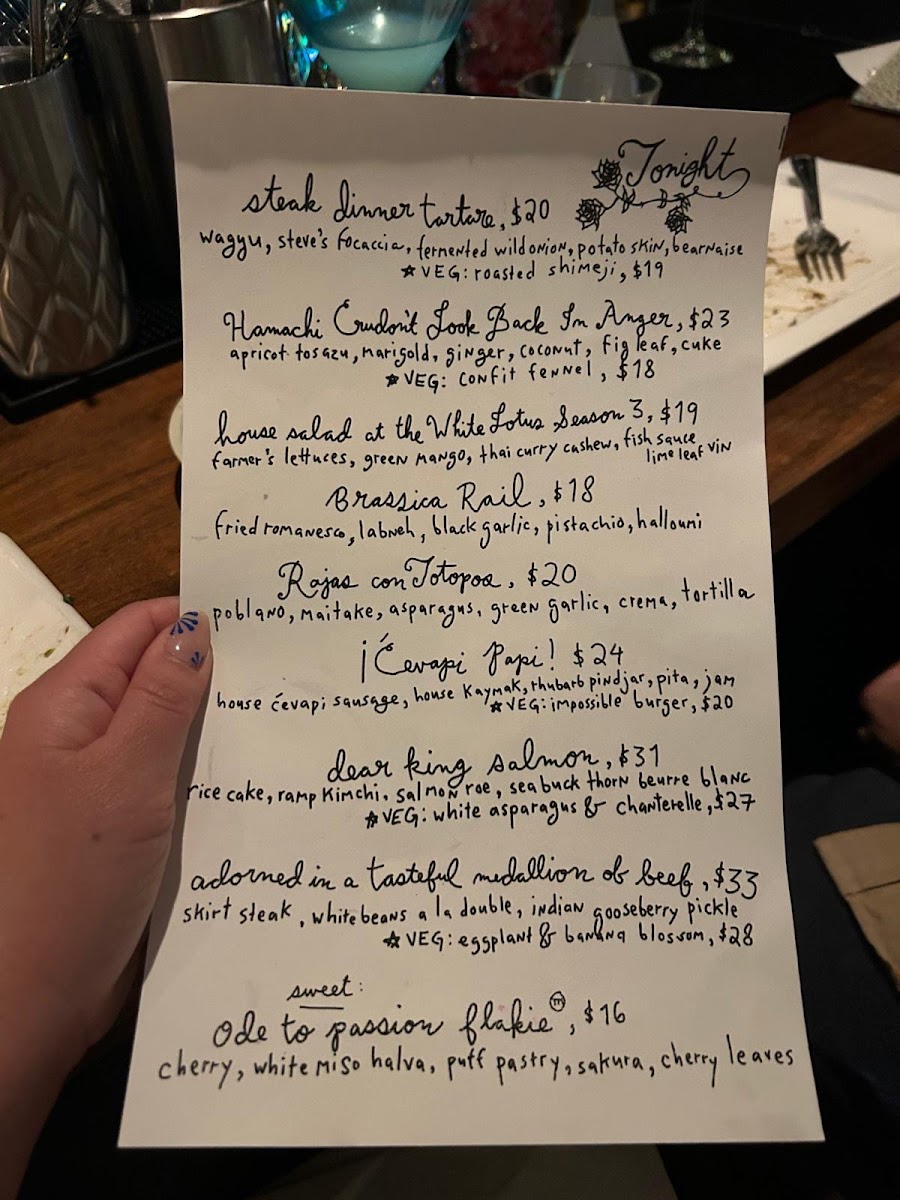 Tonight
steak dinner tartare, $20
wagyu, steve's focaccia, fermented wild onion, potato skin, bearnaise
★VEG: roasted shimeji, $19
Hamachi Crudon't Look Back In Anger, $23
apricot tosazu, marigold, ginger, coconut, fig leaf, cuke
★VEG: confit fennel, $18
house salad at the White Lotus Season 3, $19
farmer's lettuces, green mango, thai curry cashew, fish sauce
lime leaf vin
Brassica Rail, $18
fried romanesco, labneh, black garlic, pistachio, halloumi
Rajas con Totopos, $20
poblano, maitake, asparagus, green garlic, crema, tortilla
¡Ćevapi Papi! $24
house ćevapi sausage, house kaymak, rhubarb pindjar, pita, jam
★VEG: impossible burger, $20
dear king salmon, $31
rice cake, ramp kimchi, salmon roe, seabuck thorn beurre blanc
★VEG: white asparagus & chanterelle, $27
adorned in a tasteful medallion of beef, $33
skirt steak, white beans a la double, indian gooseberry pickle
★VEG: eggplant & banana blossom, $28
sweet:
Ode to passion flakie™, $16
cherry, white miso halva, puff pastry, sakura, cherry leaves